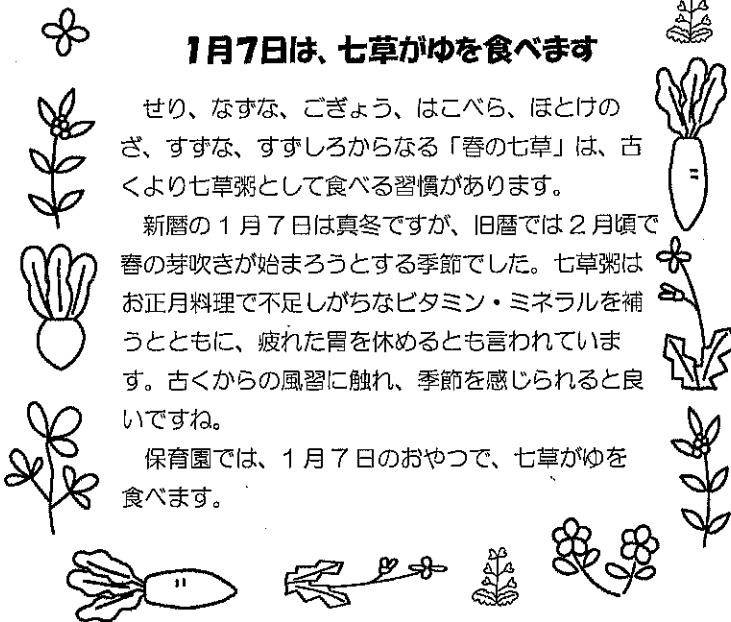 1月7日は、七草がゆを食べます
せり、なずな、ごぎょう、はこべら、ほとけの
ざ、すずな、すずしろからなる「春の七草」は、古
くより七草粥として食べる習慣があります。
新暦の1月7日は真冬ですが、旧暦では2月頃で
春の芽吹きが始まろうとする季節でした。七草粥は
お正月料理で不足しがちなビタミン・ミネラルを補
うとともに、疲れた胃を休めるとも言われていま
す。古くからの風習に触れ、季節を感じられると良
いですね。
保育園では、1月7日のおやつで、七草がゆを
食べます。